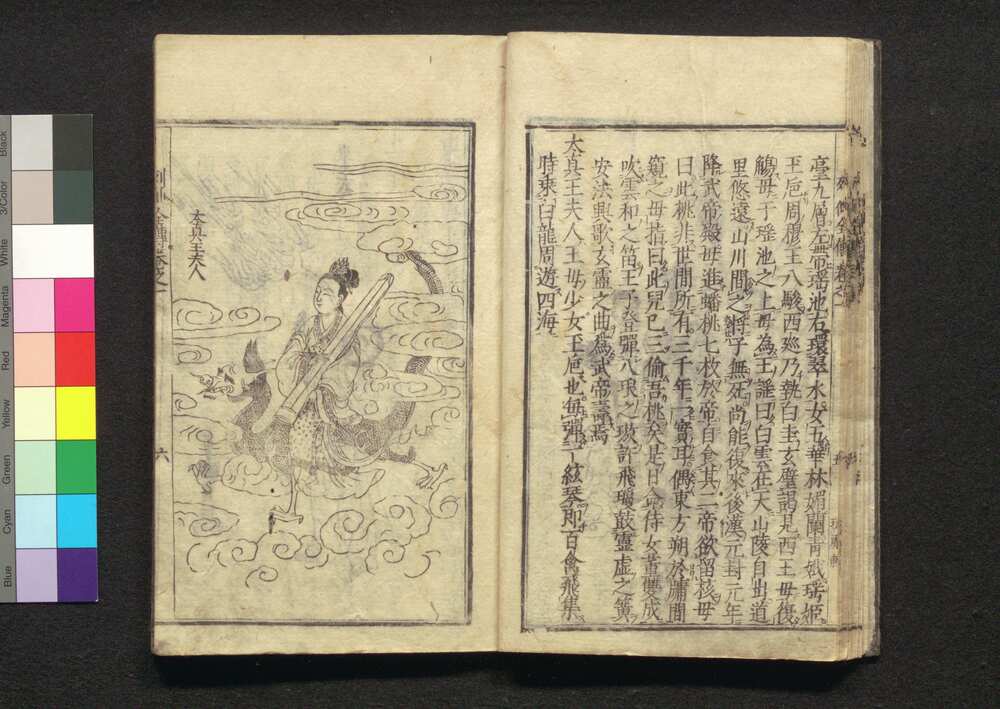 臺九層左帶瑤池右環翠水女五華林媚蘭青娥瑤姬
王巵周穆王八駿西廵乃執白圭玄璧謁見西王母復
觴母于瑤池之上母為王謠曰白雲在天山陵自出道
里悠遠山川間之將子無死尚能復來後漢元封元年
降武帝殿母進蟠桃七枚於帝自食其二帝欲留核母
曰此桃非世間所有三千年一實耳偶東方朔於牖間
窺之母指曰此兒已三偷吾桃矣是日命侍女董雙成
吹雲和之笛王子登彈八琅之璈許飛瓊鼓靈虛之簧
安法興歌玄靈之曲為武帝壽焉
太真王夫人王母少女王巵也每彈一絃琴即百禽飛集
時乘白龍周遊四海
太真王夫人
六
Black
3/Color
White
Magenta
Red
Yellow
Green
Cyan
Blue